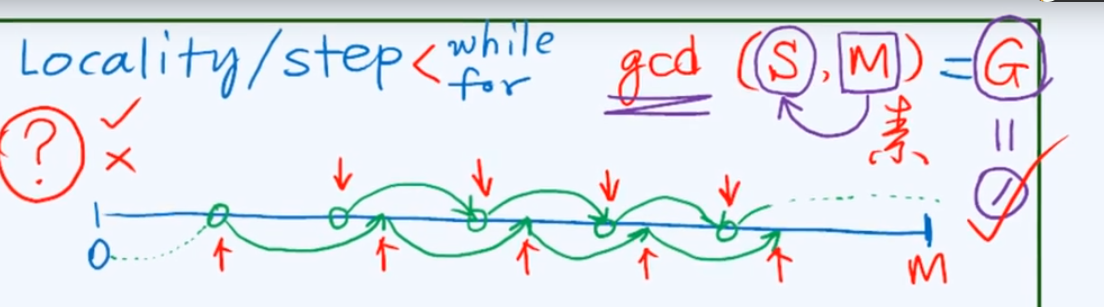 Locality/step < while for gcd (S, M) = G
? ✓ × 素 =
1
0 M